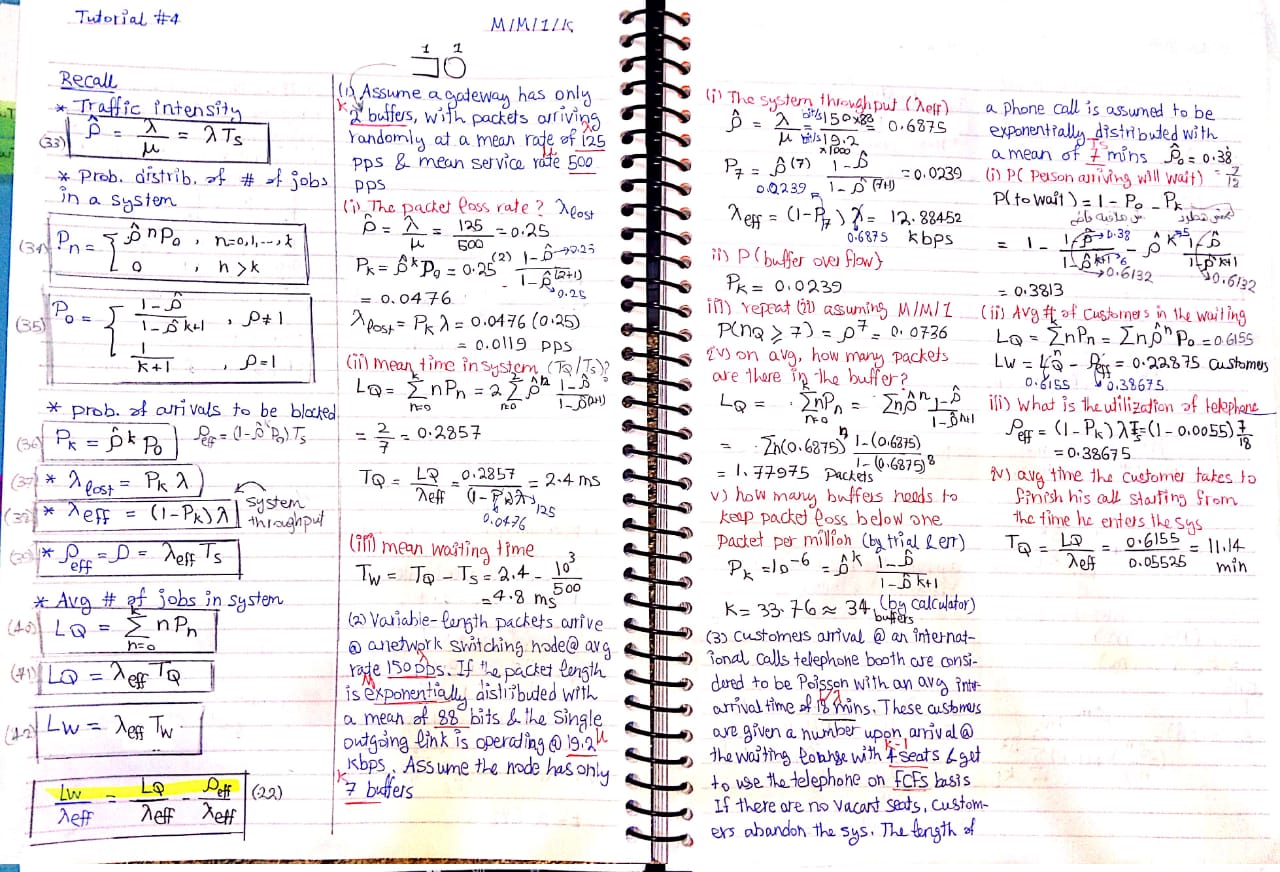 Tutorial #4
M/M/1/K
Recall
* Traffic intensity
(33) ρ̂ = λ/μ = λ Ts
* Prob. distrib. of # of jobs
in a system
(34) Pn = { ρ̂^n P0 , n=0,1,...,k
0 , n > k
(35) P0 = { (1-ρ̂)/(1-ρ̂^(k+1)) , ρ≠1
1/(k+1) , ρ=1
* prob. of arrivals to be blocked
(36) Pk = ρ̂^k P0 ρeff = (1-ρ̂^k P0) Ts
(37) * λlost = Pk λ
(38) * λeff = (1-Pk) λ
System
throughput
(39) * ρeff = D = λeff Ts
* Avg # of jobs in system
(40) LQ = Σ(n=0 to k) n Pn
(41) LQ = λeff TQ
(42) Lw = λeff Tw
Lw/λeff = LQ/λeff - ρeff/λeff (22)
1 1
(1) Assume a gateway has only
k
2 buffers, with packets arriving
randomly at a mean rate of 125 λ
pps & mean service rate 500 μ
pps
(i) The packet loss rate? λlost
ρ̂ = λ/μ = 125/500 = 0.25
Pk = ρ̂^k P0 = 0.25^(2) (1-ρ̂)/(1-ρ̂^(2+1)) → 0.25
0.25
= 0.0476
λlost = Pk λ = 0.0476 (0.25)
= 0.0119 pps
(ii) mean time in system (TQ/Ts)?
LQ = Σ(n=0 to k) n Pn = 2 Σ(n=0 to 2) ρ̂^n (1-ρ̂)/(1-ρ̂^(n+1))
= 2/7 = 0.2857
TQ = LQ/λeff = 0.2857/((1-Pk)λ) = 2.4 ms
0.0476 125
(iii) mean waiting time
Tw = TQ - Ts = 2.4 - 10^3/500
= 4.8 ms
(2) Variable-length packets arrive
@ a network switching node @ avg
rate 150 pps. If the packet length
is exponentially distributed with
a mean of 88 bits & the single
outgoing link is operating @ 19.2
kbps. Assume the node has only
k
7 buffers
(i) The system throughput (λeff)
ρ̂ = λ/μ = bit/s 150×88 / bit/s 19.2 ×1000 = 0.6875
P7 = ρ̂^(7) (1-ρ̂)/(1-ρ̂^(7+1)) = 0.0239
0.0239
λeff = (1-P7) λ = 12.88452
0.6875 kbps
ii) P(buffer overflow)
Pk = 0.0239
iii) repeat (ii) assuming M/M/1
P(nQ ≥ 7) = ρ^7 = 0.0736
iv) on avg, how many packets
are there in the buffer?
LQ = Σ(n=0 to k) n Pn = Σ n ρ̂^n (1-ρ̂)/(1-ρ̂^(n+1))
= Σ n (0.6875)^n (1-(0.6875))/(1-(0.6875)^8)
= 1.77975 Packets
v) how many buffers needs to
keep packet loss below one
packet per million (by trial & err)
Pk = 10^-6 = ρ̂^k (1-ρ̂)/(1-ρ̂^(k+1))
K = 33.76 ≈ 34 (by calculator)
buffers
(3) Customers arrival @ an internat-
ional calls telephone booth are consi-
dered to be Poisson with an avg inter-
arrival time of 18 mins. These customers
are given a number upon arrival @
k-1
the waiting lounge with 4 seats & get
to use the telephone on FCFS basis
If there are no vacant seats, custom-
ers abandon the sys. The length of
a phone call is assumed to be
exponentially distributed with
Ts
a mean of 7 mins ρ̂0 = 0.38
(i) P( Person arriving will wait) = 7/18
P(to wait) = 1 - P0 - Pk
= 1 - (1-ρ̂)/(1-ρ̂^(k+1)) - ρ̂^k (1-ρ̂)/(1-ρ̂^(k+1))
0.38 5 6 0.6132 0.6132
= 0.3813
(ii) Avg # of customers in the waiting
LQ = Σ n Pn = Σ n ρ̂^n P0 = 0.6155
Lw = LQ - ρeff = 0.22875 customers
0.6155 0.38675
iii) What is the utilization of telephone
ρeff = (1-Pk) λTs = (1-0.0055) 7/18
= 0.38675
iv) avg time the customer takes to
finish his call starting from
the time he enters the sys
TQ = LQ/λeff = 0.6155/0.05525 = 11.14
min